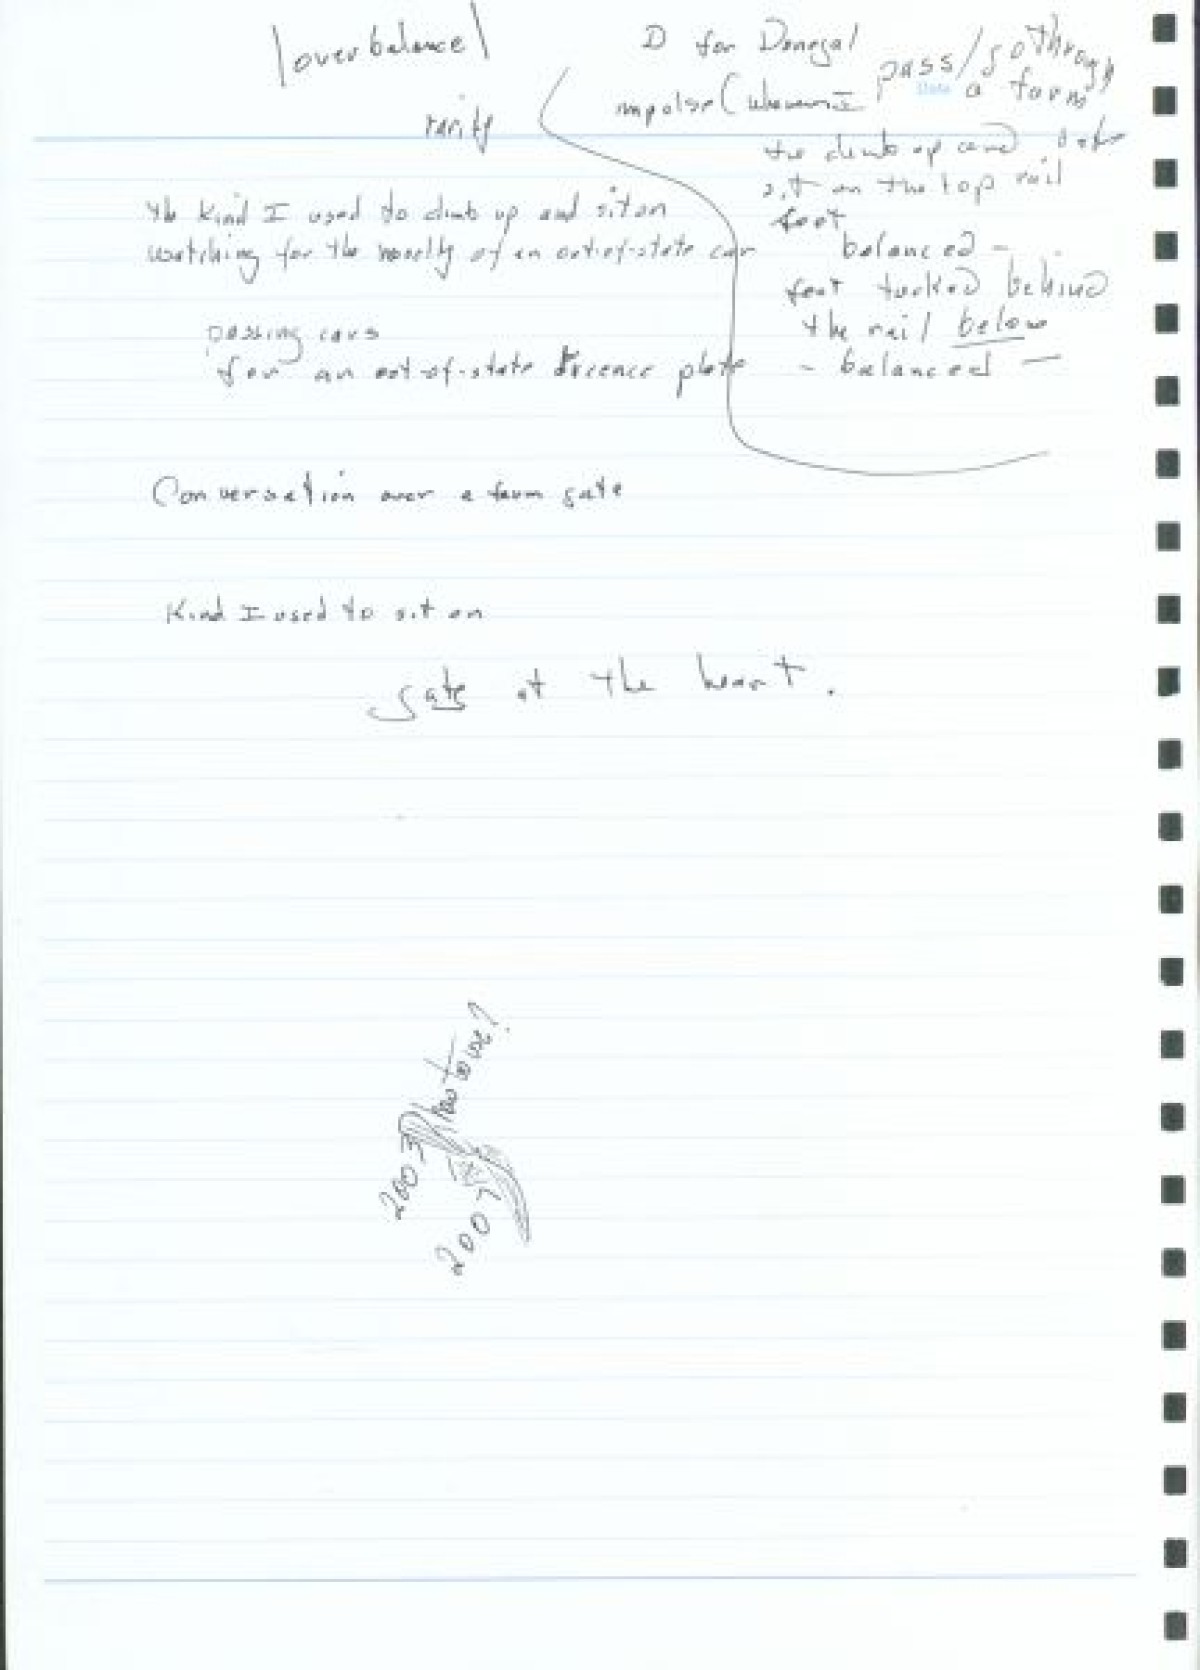 overbalance
rarity
D for Donegal
impulse (whenever I pass/go through
Date
a farm
to climb up and
sit on the top rail
feet
balanced –
feet tucked behind
the rail below
– balanced –
the kind I used to climb up and sit on
watching for the novelty of an out-of-state car
passing cars
for an out-of-state licence plate
Conversation over a farm gate
Kind I used to sit on
gate at the heart.
how to use?
200
200